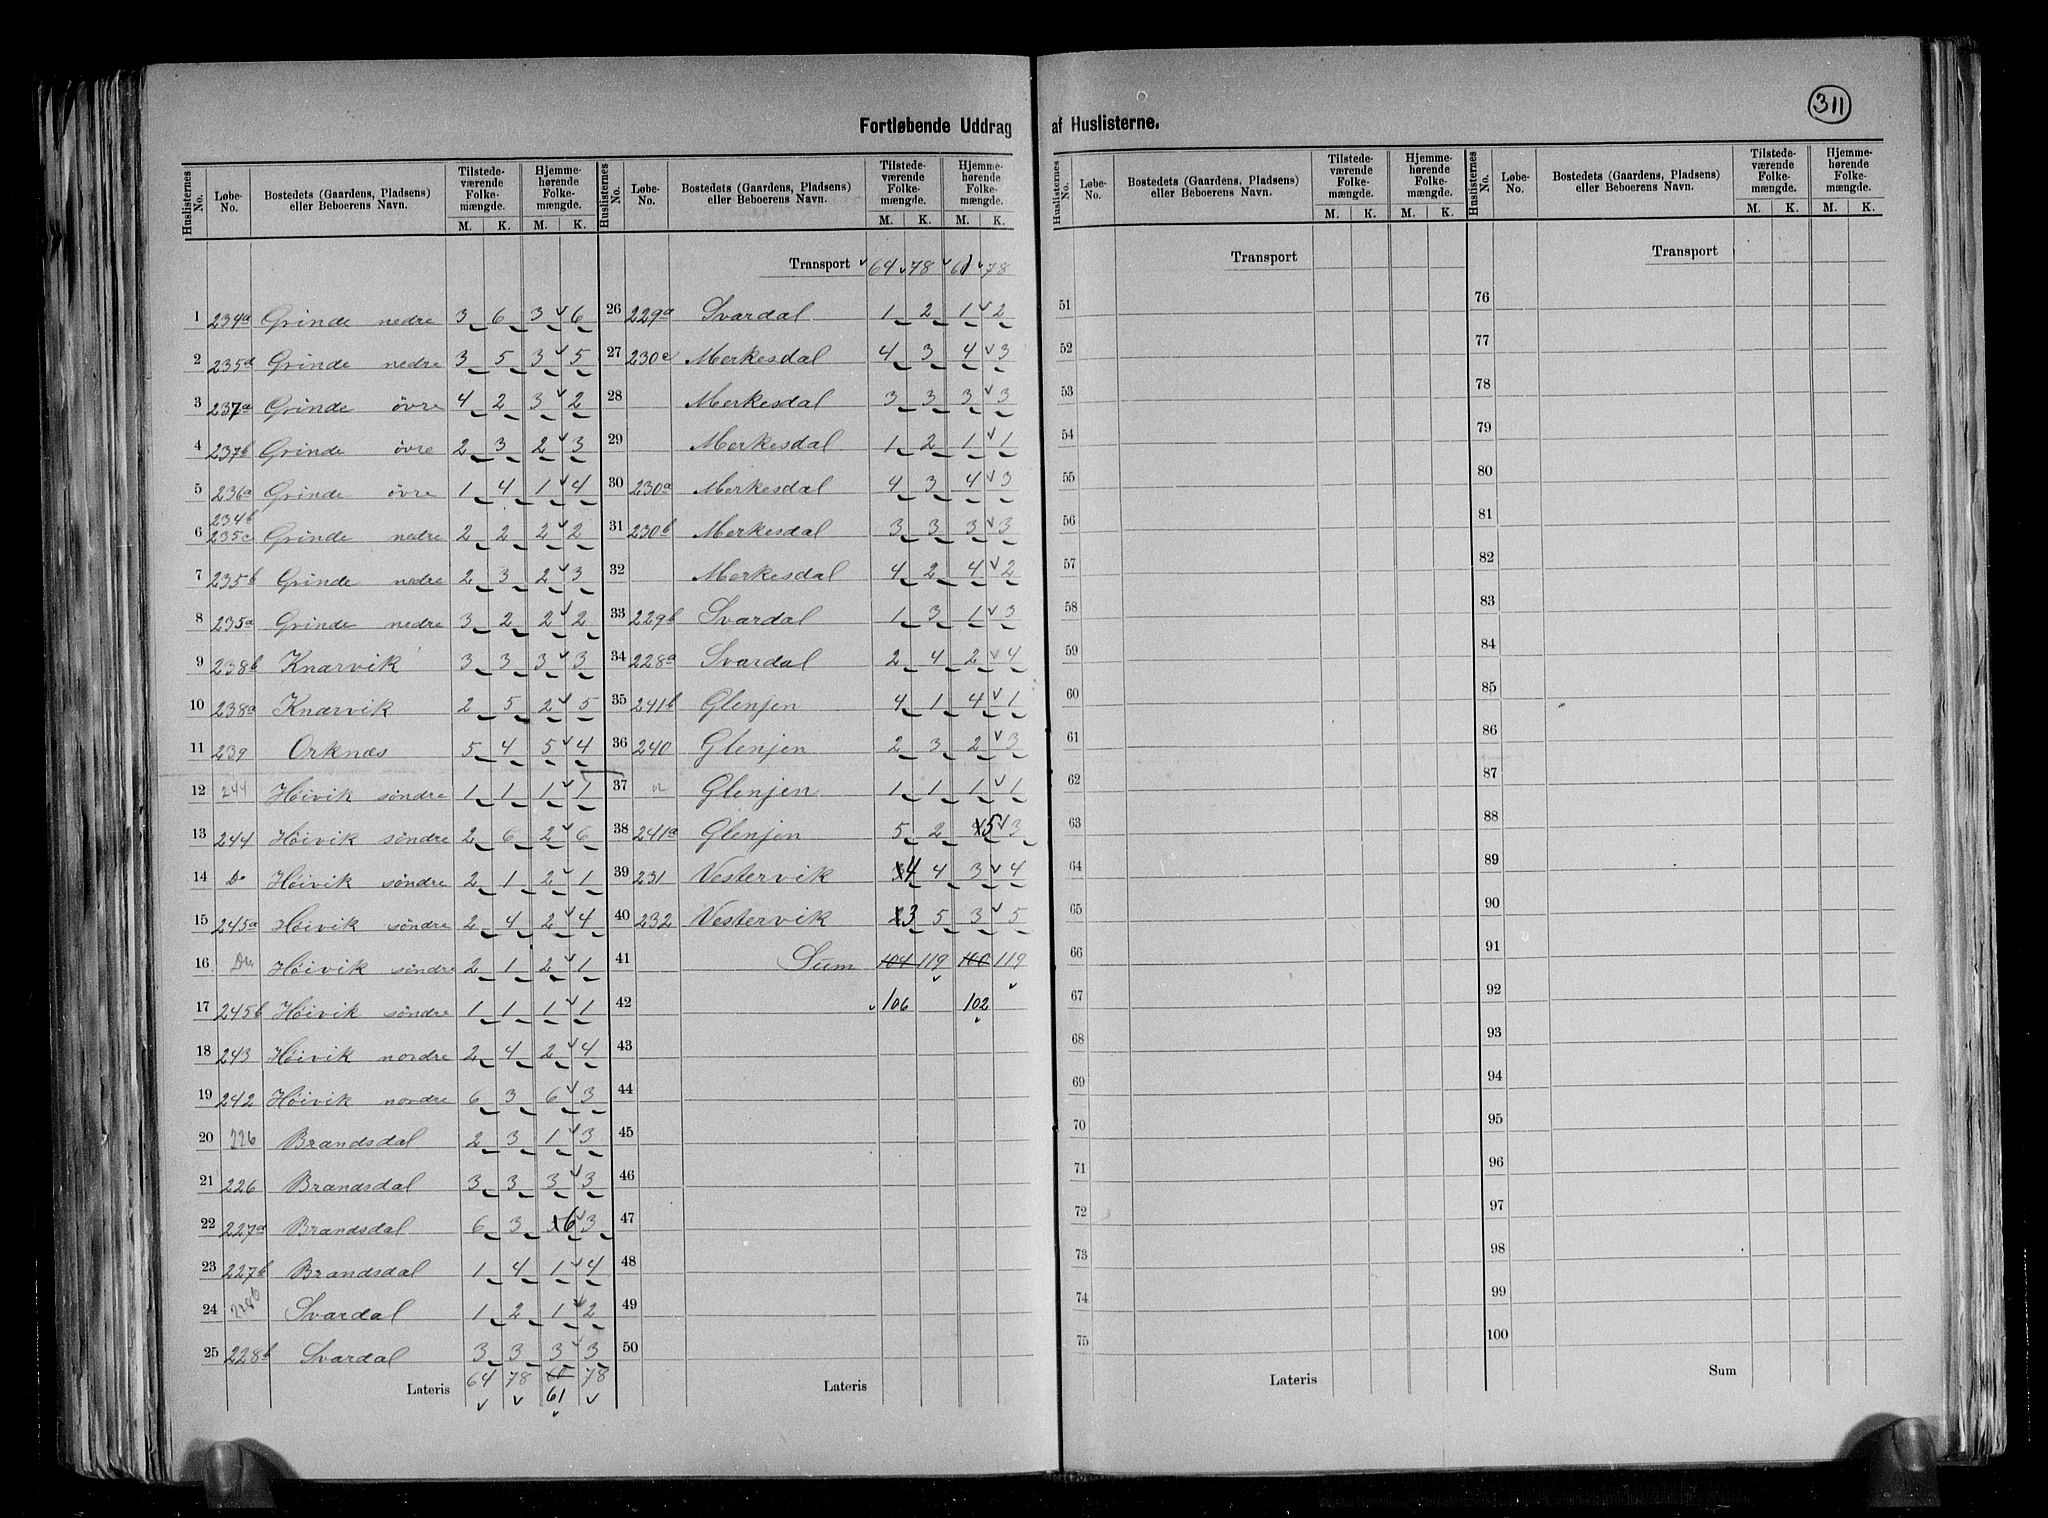 311
Fortløbende Uddrag af Huslisterne.
Huslisternes No. | Løbe-No. | Bostedets (Gaardens, Pladsens) eller Beboerens Navn. | Tilstedeværende Folkemængde. M. K. | Hjemmehørende Folkemængde. M. K.
1 234a Grinde nedre 3 6 3 6
2 235d Grinde nedre 3 5 3 5
3 237a Grinde övre 4 2 3 2
4 237b Grinde övre 2 3 2 3
5 236a Grinde övre 1 4 1 4
6 234b 235c Grinde nedre 2 2 2 2
7 235b Grinde nedre 2 3 2 3
8 235a Grinde nedre 3 2 2 2
9 238b Knarvik 3 3 3 3
10 238a Knarvik 2 5 2 5
11 239 Orknæs 5 4 5 4
12 244 Höivik söndre 1 1 1 1
13 244 Höivik söndre 2 6 2 6
14 Do Höivik söndre 2 1 2 1
15 245a Höivik söndre 2 4 2 4
16 Do Höivik söndre 2 1 2 1
17 245b Höivik söndre 1 1 1 1
18 243 Höivik nordre 2 4 2 4
19 242 Höivik nordre 6 3 6 3
20 226 Brandsdal 2 3 1 3
21 226 Brandsdal 3 3 3 3
22 227a Brandsdal 6 3 6 3
23 227b Brandsdal 1 4 1 4
24 228b Svardal 1 2 1 2
25 228b Svardal 3 3 3 3
Lateris 64 78 60 78
61
Huslisternes No. | Løbe-No. | Bostedets (Gaardens, Pladsens) eller Beboerens Navn. | Tilstedeværende Folkemængde. M. K. | Hjemmehørende Folkemængde. M. K.
Transport 64 78 61 78
26 229a Svardal 1 2 1 2
27 230c Merkesdal 4 3 4 3
28 Merkesdal 3 3 3 3
29 Merkesdal 1 2 1 1
30 230a Merkesdal 4 3 4 3
31 230b Merkesdal 3 3 3 3
32 Merkesdal 4 2 4 2
33 229b Svardal 1 3 1 3
34 228a Svardal 2 4 2 4
35 241b Glenjen 4 1 4 1
36 240 Glenjen 2 3 2 3
37 Glenjen 1 1 1 1
38 241a Glenjen 5 2 5 3
39 231 Vestervik 4 4 3 4
40 232 Vestervik 3 5 3 5
41 Sum 104 119 100 119
42 106 102
43
44
45
46
47
48
49
50
Lateris
Huslisternes No. | Løbe-No. | Bostedets (Gaardens, Pladsens) eller Beboerens Navn. | Tilstedeværende Folkemængde. M. K. | Hjemmehørende Folkemængde. M. K.
Transport
51
52
53
54
55
56
57
58
59
60
61
62
63
64
65
66
67
68
69
70
71
72
73
74
75
Lateris
Huslisternes No. | Løbe-No. | Bostedets (Gaardens, Pladsens) eller Beboerens Navn. | Tilstedeværende Folkemængde. M. K. | Hjemmehørende Folkemængde. M. K.
Transport
76
77
78
79
80
81
82
83
84
85
86
87
88
89
90
91
92
93
94
95
96
97
98
99
100
Sum